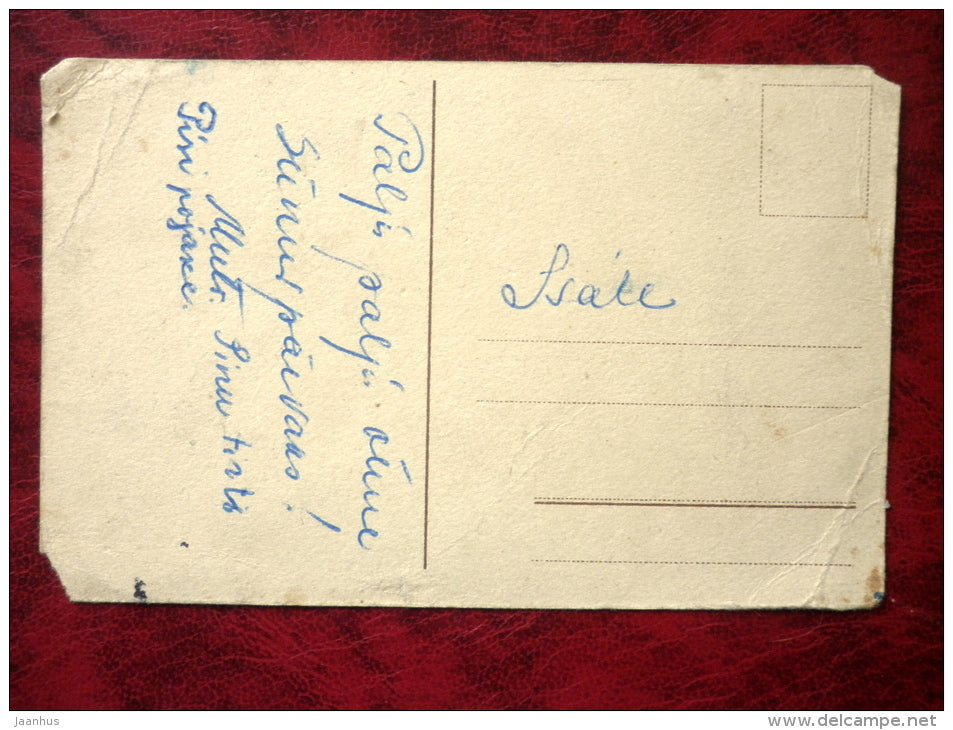 Palju palju õnne
Sünnipäevaks!
Mutt. Sinu
Pisi pojake.
Isale
Jaanhus
www.delcampe.net